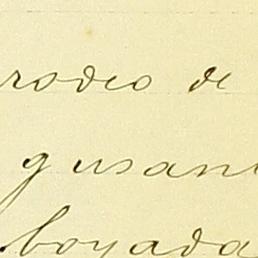 rodeo de
y usan
boyada